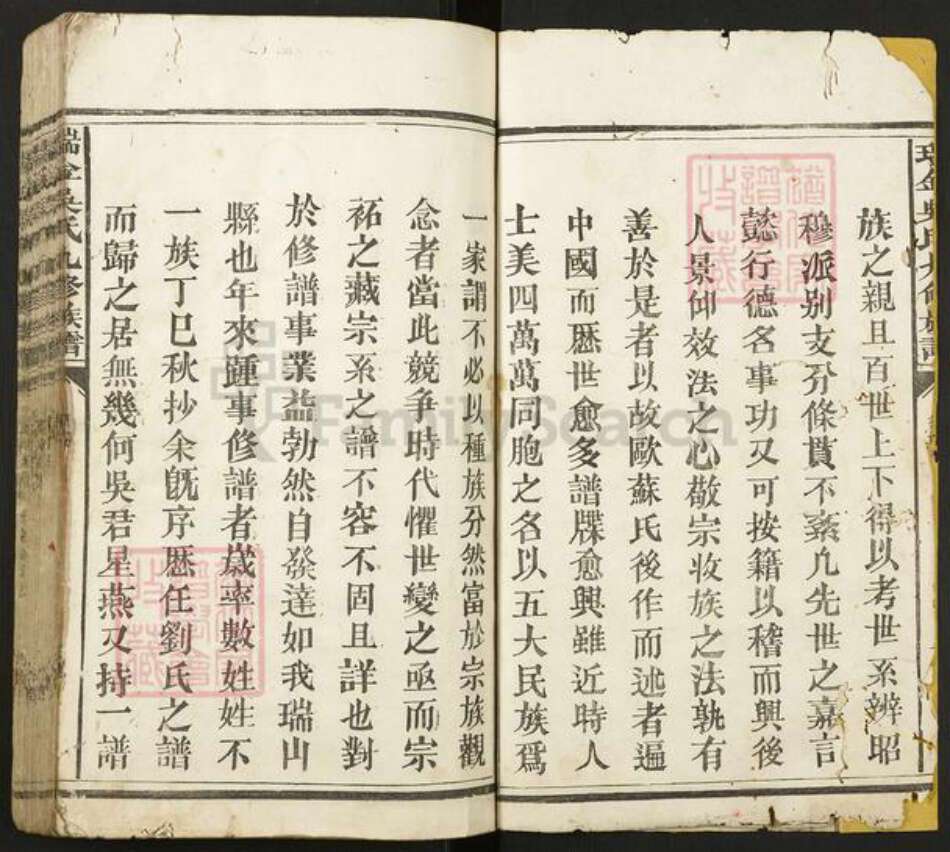 族之親且百世上下得以考世系辨昭
穆派别支分條貫不紊凡先世之嘉言
懿行德名事功又可按籍以稽而興後
人景仰效法之心敬宗收族之法孰有
善於是者以故歐蘇氏後作而述者遍
中國而歷世愈多譜牒愈興雖近時人
士美四萬萬同胞之名以五大民族爲
一家謂不必以種族分然富於宗族觀
念者當此競争時代懼世變之亟而宗
祏之藏宗系之譜不容不固且詳也對
於修譜事業益勃然自發達如我瑞山
縣也年來踵事修譜者歲率數姓姓不
一族丁巳秋抄余旣序歷任劉氏之譜
而歸之居無幾何吳君星燕又持一譜
瑞金吳氏九修族譜
FamilySearch